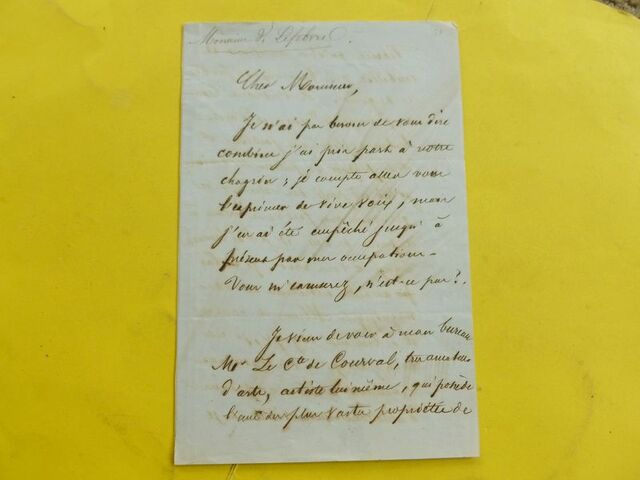 Monsieur V. Lefebvre.
Cher Monsieur,
Je n'ai pas besoin de vous dire
combien j'ai pris part à votre
chagrin ; je compte aller vous
l'exprimer de vive voix, mais
j'en ai été empêché jusqu'à
présent par mes occupations -
Vous m'excuserez, n'est-ce pas ?
Je viens de voir à mon bureau
Mr Le Cte de Courval, très amateur
d'arts, artiste lui même, qui possède
l'une des plus vastes propriétés de